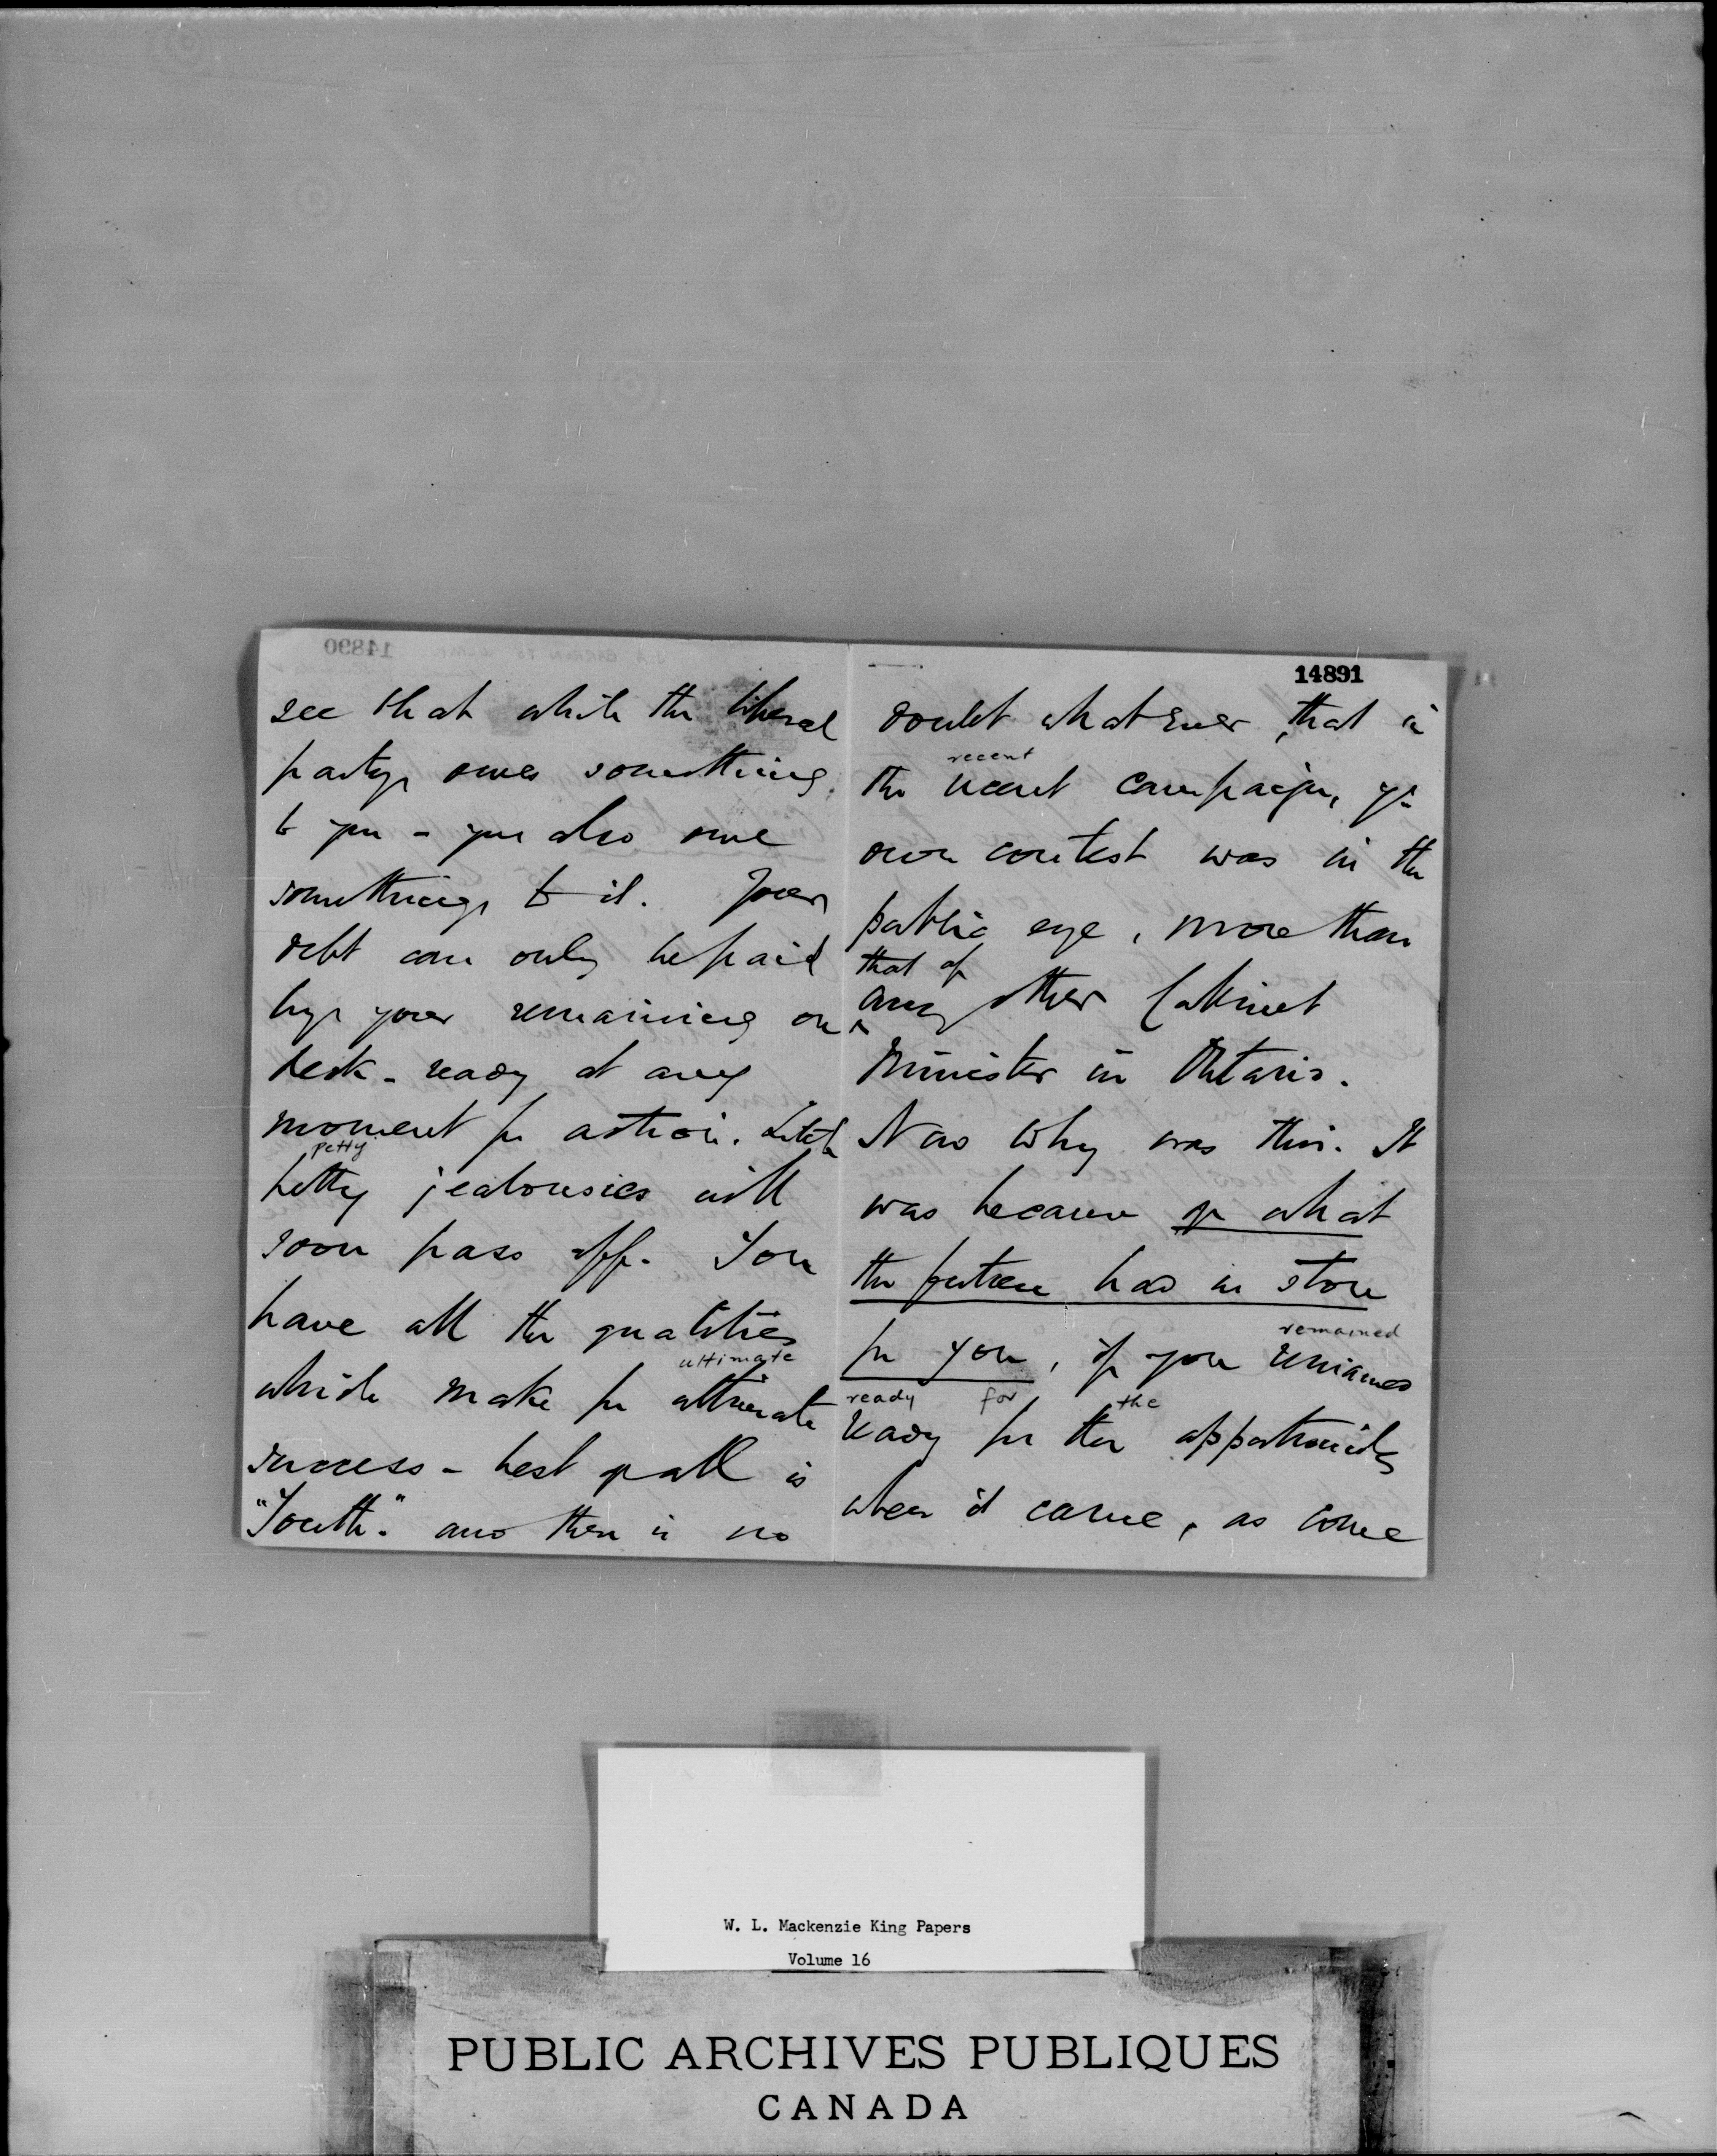 14890
see that while the liberal
party owes something
to you - you also owe
something to it. Your
debt can only be paid
by your remaining on
deck - ready at any
moment for action. Little
petty
petty jealousies will
soon pass off. You
have all the qualities
ultimate
which make for ultimate
success - best of all is
"Youth". and there is no
14891
doubt whatever, that in
recent
the recent campaign, yr
own contest was in the
public eye, more than
that of
any other Cabinet
Minister in Ontario.
Now why was this. It
was because of what
the future had in store
remained
for you, if you remained
ready for the
ready for the opportunity
when it came, as come
W. L. Mackenzie King Papers
Volume 16
PUBLIC ARCHIVES PUBLIQUES
CANADA